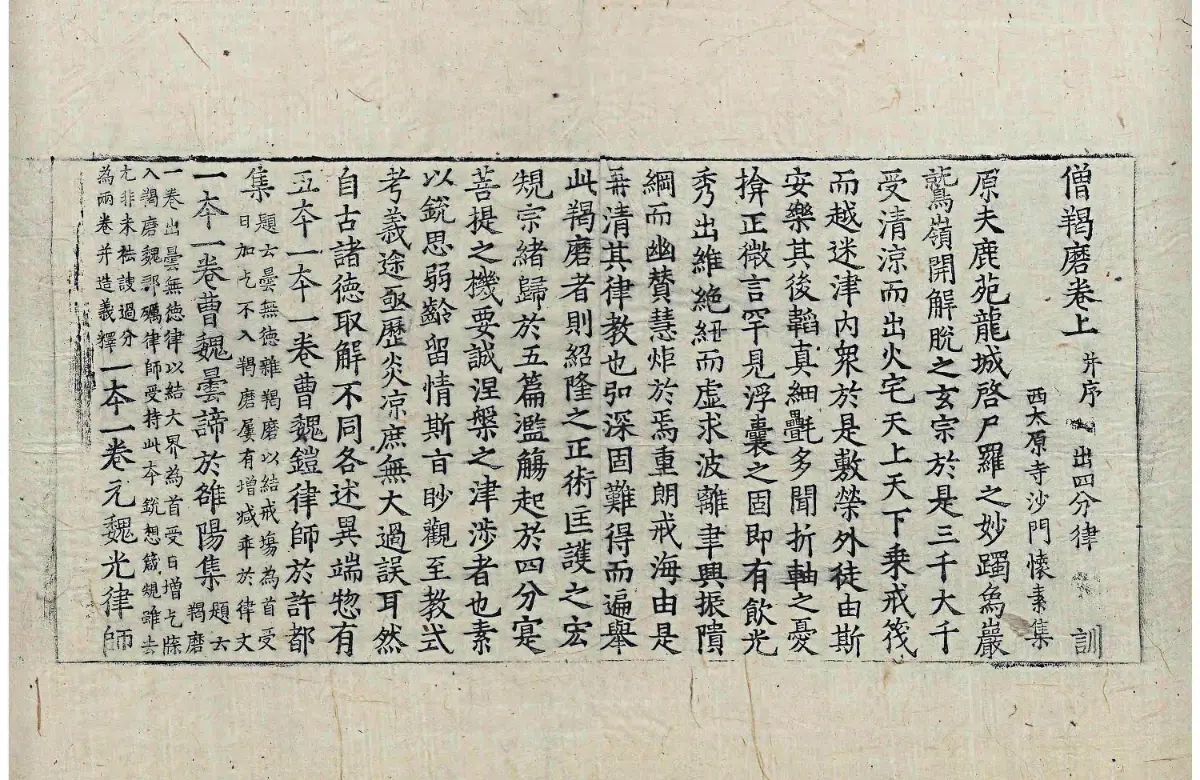 僧羯磨卷上 并序 出四分律 訓
西太原寺沙門懷素集
原夫鹿苑龍城啓尸羅之妙躅象巖
鷲嶺開解脫之玄宗於是三千大千
受清涼而出火宅天上天下乗戒筏
而越迷津内衆於是敷榮外徒由斯
安樂其後韜真細氎多聞折軸之憂
揜正微言罕見浮囊之固即有飲光
秀出維絶紐而虚求波離聿興振隤
綱而幽賛慧炬於焉重朗戒海由是
再清其律教也弘深固難得而遍舉
此羯磨者則紹隆之正術匡護之宏
規宗緒歸於五篇濫觴起於四分寔
菩提之機要誠涅槃之津涉者也素
以銳思弱齡留情斯旨眇觀至教式
考義途亟歷炎涼庶無大過誤耳然
自古諸德取解不同各述異端惣有
五夲一夲一卷曹魏鎧律師於許都
集 題云曇無德雜羯磨以結戒塲為首受
日加乞不入羯磨屢有增減乖於律文
一夲一卷曹魏曇諦於雒陽集 題云
羯磨
一卷出曇無德律以結大界為首受日增乞牒
入羯磨魏郡礪律師受持此夲銳想箴規雖去
尤非未祛謏過分
為兩卷并造義釋 一夲一卷元魏光律師